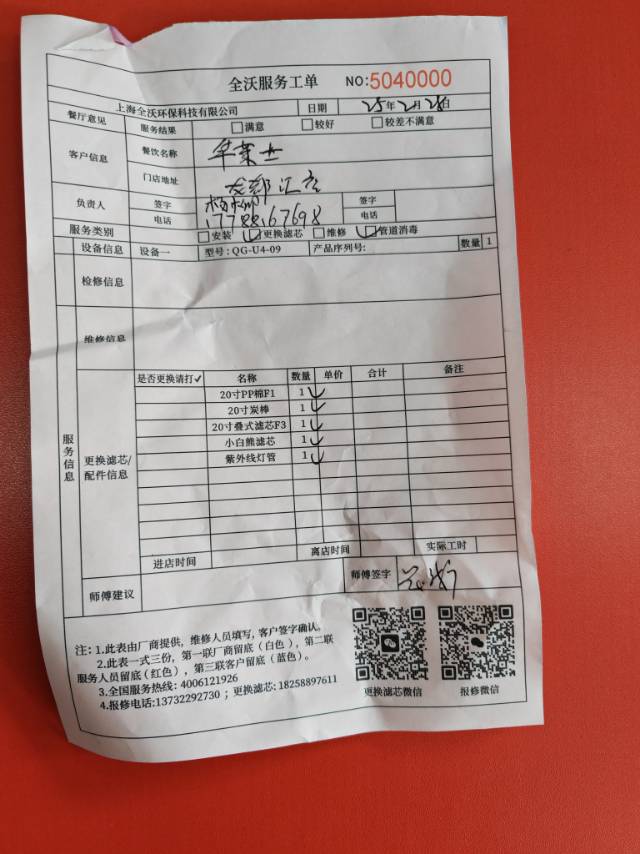 全沃服务工单 NO:5040000
上海全沃环保科技有限公司 日期 25年2月28日
餐厅意见 服务结果 满意 较好 较差不满意
客户信息 餐饮名称 华莱士
门店地址 成都汇
负责人 签字 签字
电话 17788167698 电话
服务类别 安装 更换滤芯 维修 管道消毒
设备信息 设备一 型号:QG-U4-09 产品序列号: 数量 1
检修信息
维修信息
服务信息
更换滤芯/配件信息
是否更换请打✓ 名称 数量 单价 合计 备注
20寸PP棉F1 1 ✓
20寸炭棒 1 ✓
20寸叠式滤芯F3 1 ✓
小白熊滤芯 1 ✓
紫外线灯管 1 ✓
进店时间 离店时间 实际工时
师傅建议 师傅签字
注: 1.此表由厂商提供, 维修人员填写, 客户签字确认。
2.此表一式三份, 第一联厂商留底(白色), 第二联
服务人员留底(红色), 第三联客户留底(蓝色)。
3.全国服务热线: 4006121926
4.报修电话:13732292730 ; 更换滤芯: 18258897611
更换滤芯微信 报修微信